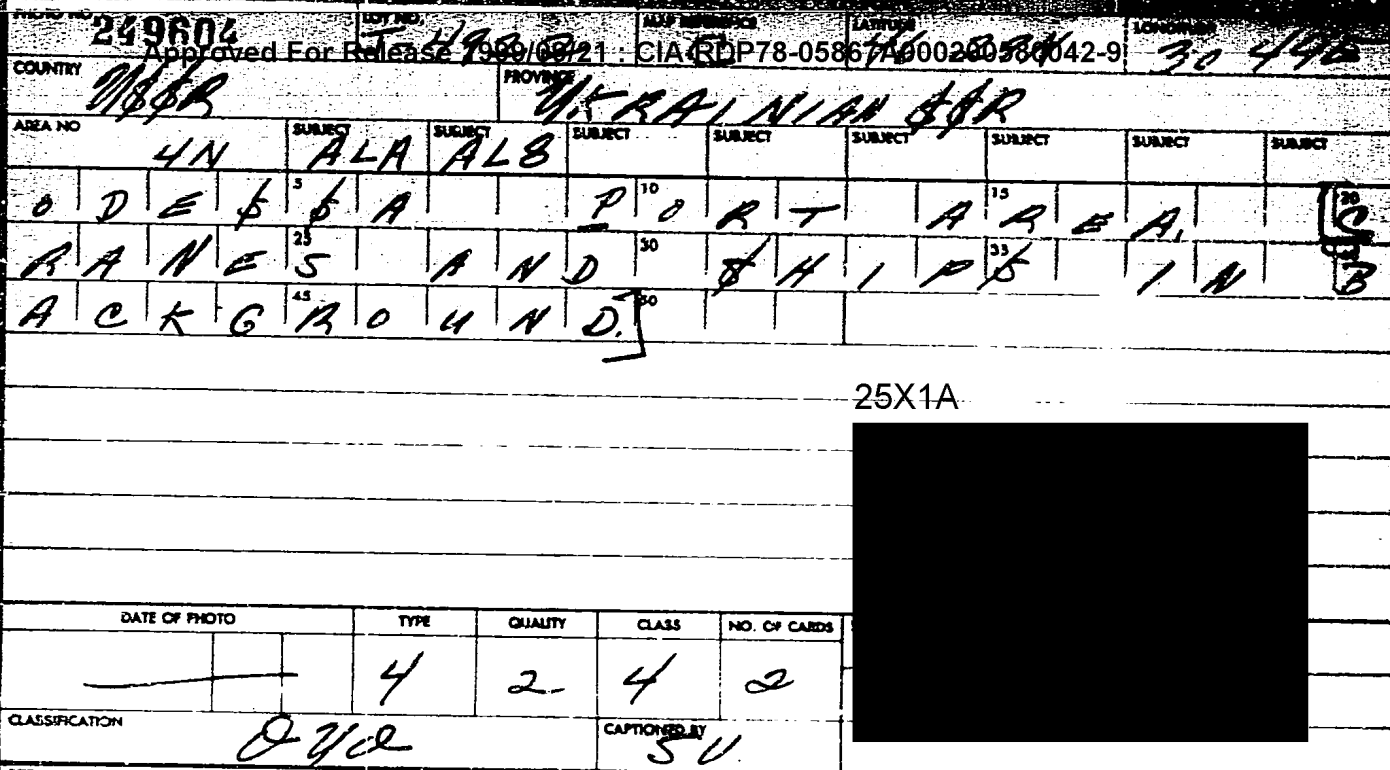 PHOTO NO. 249604 LOT NO. MAP REFERENCE LATITUDE LONGITUDE 30 44E
Approved For Release 1999/09/21 : CIA-RDP78-05867A000200580042-9
COUNTRY U$$R PROVINCE UKRAINIAN $$R
AREA NO 4N SUBJECT ALA SUBJECT AL8 SUBJECT SUBJECT SUBJECT SUBJECT SUBJECT SUBJECT
ODE$ 5 $A P 10 ORT A 15 REA. 20 [C
RANE 25 S AND 30 $HIP 35 $ IN B
ACKG 45 ROUND.] 50
25X1A
DATE OF PHOTO TYPE QUALITY CLASS NO. OF CARDS
4 2 4 2
CLASSIFICATION CAPTIONED BY SV